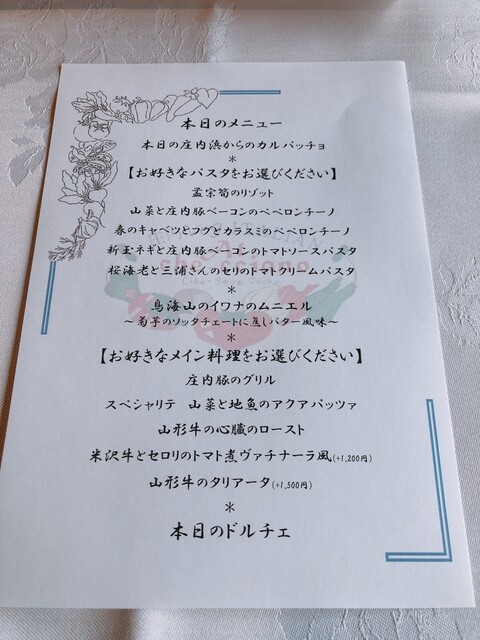 本日のメニュー
本日の庄内浜からのカルパッチョ
＊
【お好きなパスタをお選びください】
孟宗筍のリゾット
山菜と庄内豚ベーコンのペペロンチーノ
春のキャベツとフグとカラスミのペペロンチーノ
新玉ネギと庄内豚ベーコンのトマトソースパスタ
桜海老と三浦さんのセリのトマトクリームパスタ
＊
鳥海山のイワナのムニエル
～菊芋のソッタチェートに蒸しバター風味～
＊
【お好きなメイン料理をお選びください】
庄内豚のグリル
スペシャリテ　山菜と地魚のアクアパッツァ
山形牛の心臓のロースト
米沢牛とセロリのトマト煮ヴァチナーラ風(+1,200円)
山形牛のタリアータ(+1,500円)
＊
本日のドルチェ